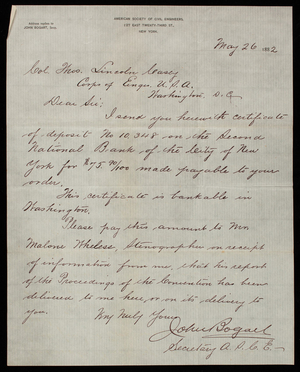 AMERICAN SOCIETY OF CIVIL ENGINEERS,
127 EAST TWENTY-THIRD ST.,
NEW YORK.
Address replies to
JOHN BOGART, Secy.
May 26 1882
Col. Thos. Lincoln Casey
Corps of Engrs. U.S.A.
Washington D.C.
Dear Sir:
I send you herewith certificate
of deposit No 10,348 on the Second
National Bank of the City of New
York for $75 90/100 made payable to your
order.
This certificate is bankable in
Washington.
Please pay this amount to Mr.
Malone Whelese, Stenographer on receipt
of information from me, that his report
of the Proceedings of the Convention has been
delivered to me here, or on its delivery to
you.
Very Truly Yours
John Bogart
Secretary A.S.C.E.